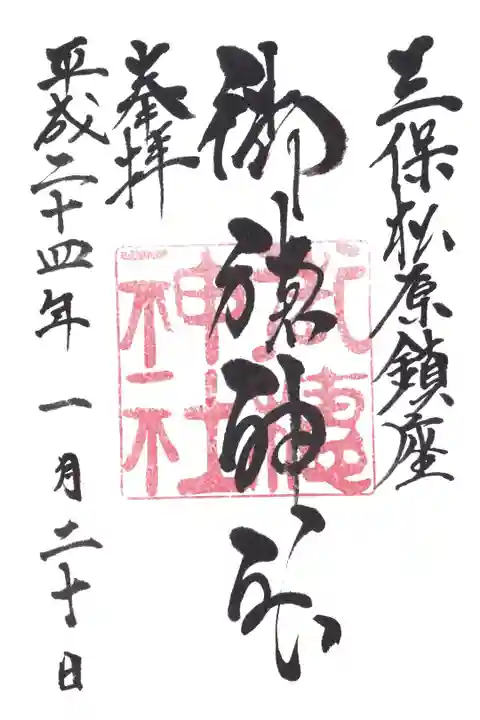 三保松原鎮座
御穂神社
御穗神社
奉拝
平成二十四年 一月二十日